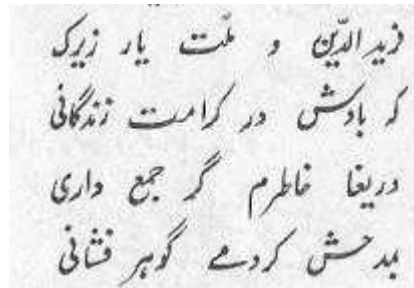 فرید الدّین و ملّت یار زیرک
که بادش در کرامت زندگانی
دریغا خاطرم گر جمع داری
بمدحش کردمے گوہر فشانی